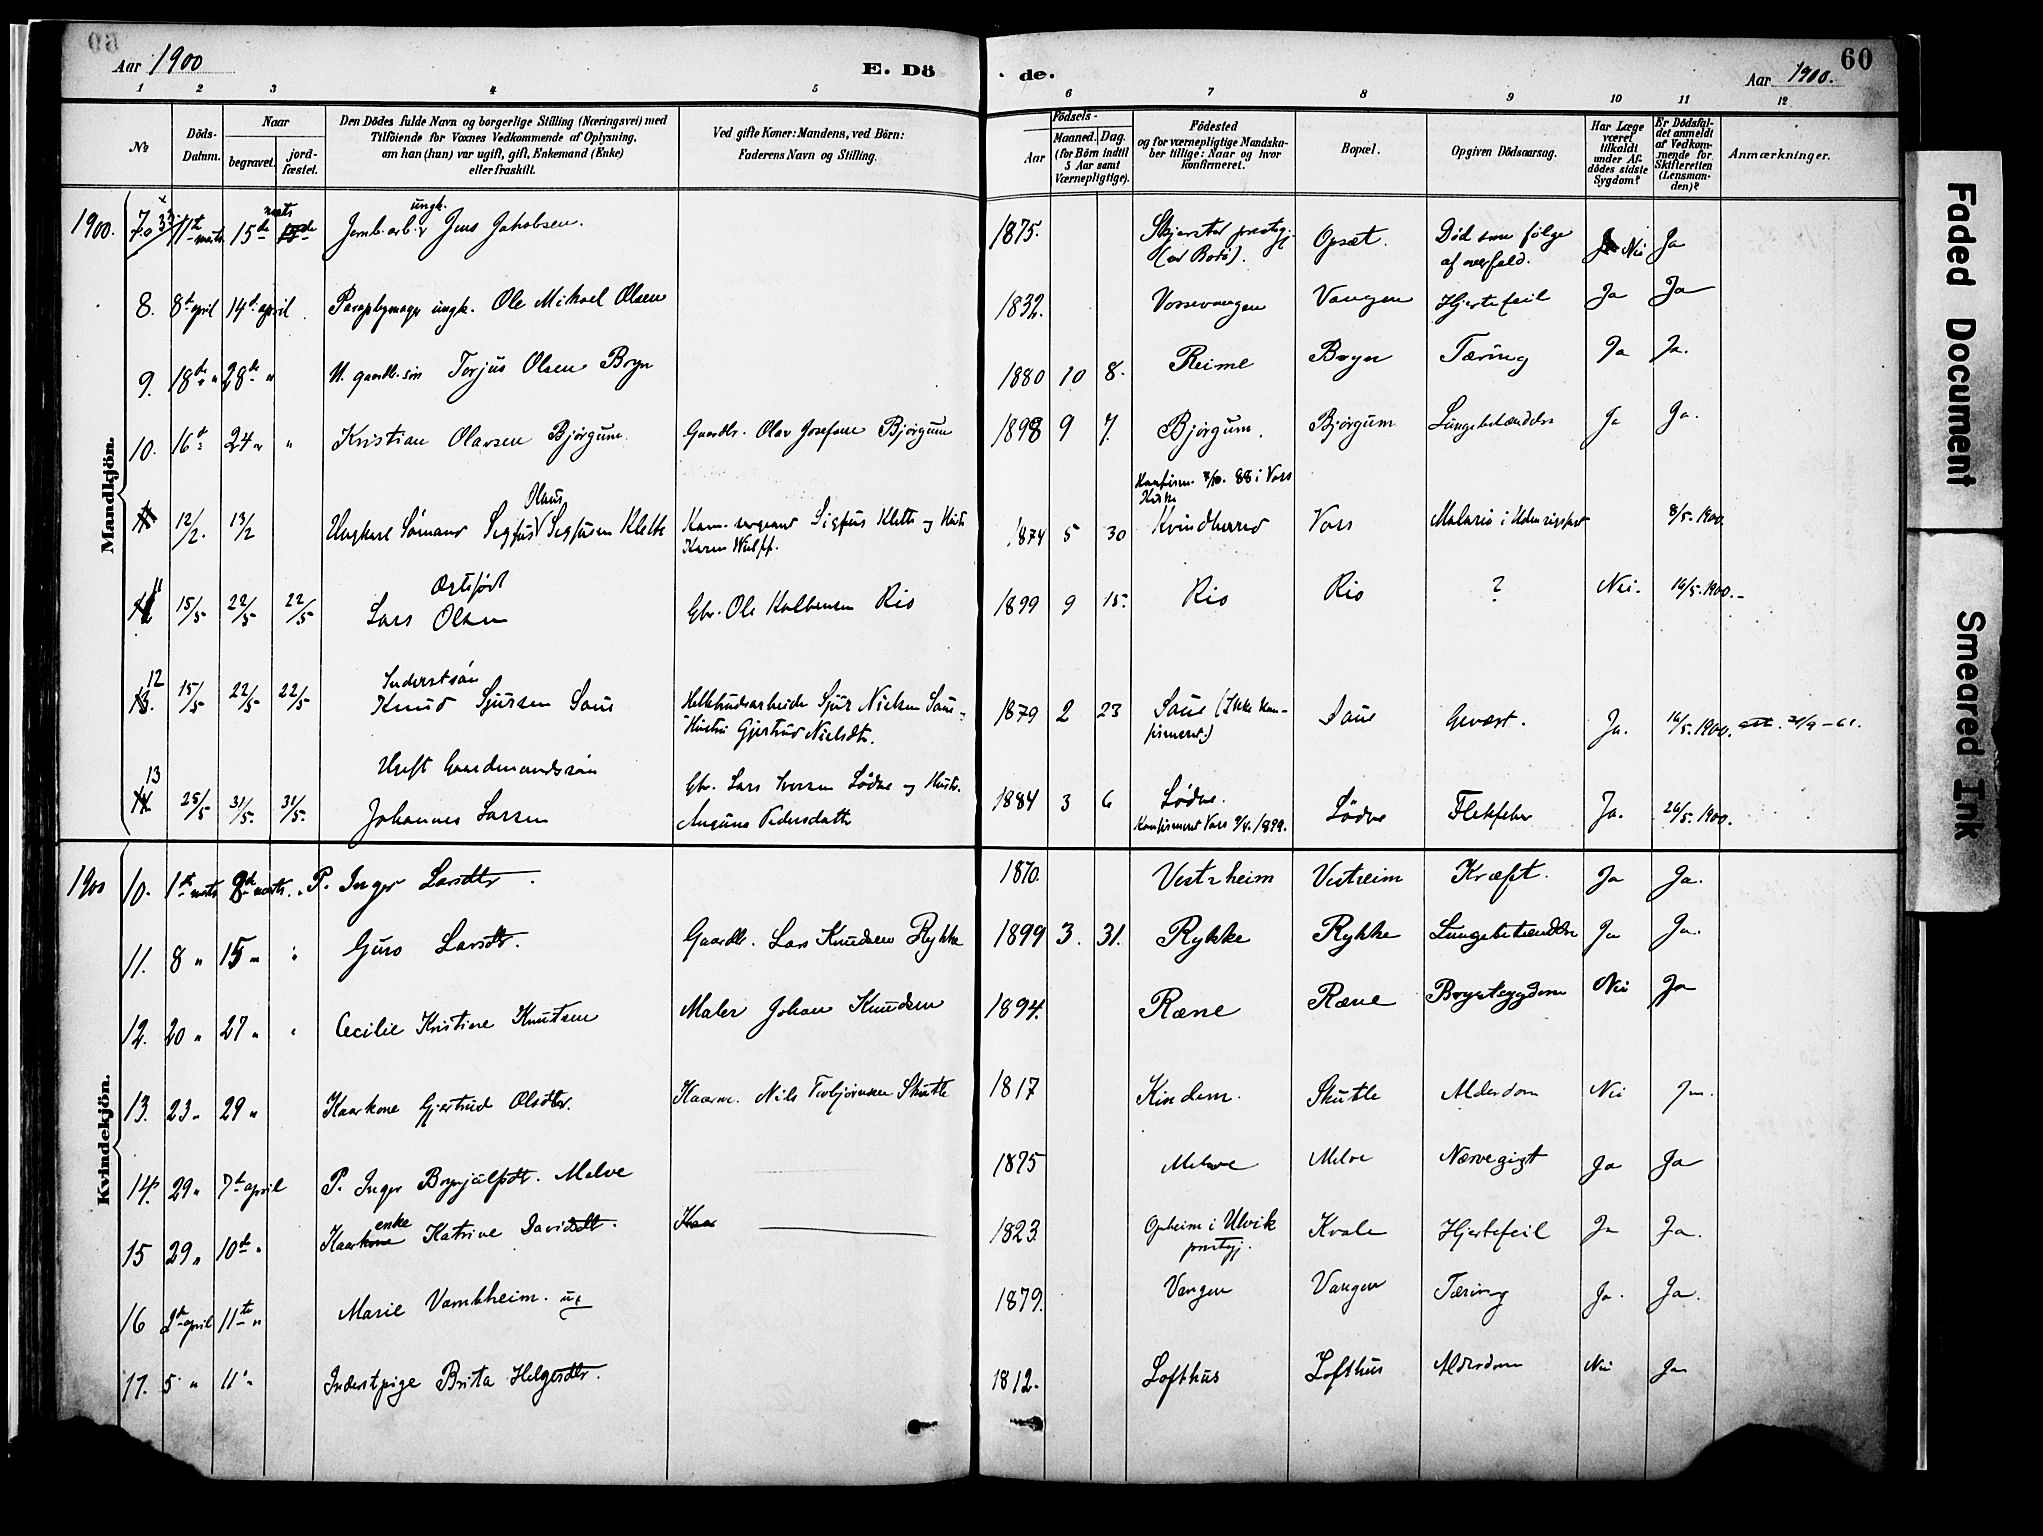 60
Aar 1900
E. Dö
de.
Aar 1900.
60
1 2 3 4 5 6 7 8 9 10 11 12
№
Döds-Datum.
Naar
begravet.
jord-fæstet.
Den Dödes fulde Navn og borgerlige Stilling (Næringsvei) med
Tilföiende for Voxnes Vedkommende af Oplysning,
om han (hun) var ugift, gift, Enkemand (Enke)
eller fraskilt.
Ved gifte Koner: Mandens, ved Börn:
Faderens Navn og Stilling.
Födsels-
Aar
Maaned. Dag.
(for Börn indtil
5 Aar samt
Værnepligtige).
Födested
og for værnepligtige Mandska-
ber tillige: Naar og hvor
konfirmeret.
Bopæl.
Opgiven Dödsaarsag.
Har Læge
været
tilkaldt
under Af-
dödes sidste
Sygdom?
Er Dödsfal-
det anmeldt
af Vedkom-
mende for
Skifteretten
(Lensman-
den)?
Anmærkninger.
Mandkjön.
1900. 7. 11te marts 15de marts Jernb.arb.r ungk. Jens Jakobsen. 1875. Skjerstad prestegj. (ved Bodö). Opsæt. Död som fölge af overfald. Nei Ja
8. 8de april 14de april Paraplymager ungk. Ole Mikael Olsen 1832. Vossevangen Vangen Hjertefeil Ja Ja
9. 18de " 28de " U. gaardb. sön Torjus Olsen Bryn 1880 10 8. Reime Bryn Tæring Ja Ja.
10. 16de " 24 " " Kristian Olavsen Bjørgum Gaardbr. Olav Josefsen Bjørgum 1898 9 7. Bjørgum. Bjørgum Lungebetændelse Ja Ja.
Konfirm. 2/10. 88 i Vors Kirke
12/2. 13/2 Ungkarl Sømand Sigfus Olaus Sigfusen Klette Kom. sergeant Sigfus Klette og Hustr. Karen Wulff. 1874 5 30 Kvindherred Vors Malaria i Udenrigsfart 8/5. 1900.
11 15/5 22/5 22/5 Ærtefødt Lars Olsen Gbr. Ole Kolbensen Rio 1899 9 15. Rio Rio ? Nei. 16/5. 1900.
12 15/5 22/5 22/5 Inderstsön Knud Sjursen Saue Sjur Nielsen Saue Hustru Gjertrud Nielsdtr. 1879 2 23 Saue (Ikke konfirmeret.) Saue Ja. 16/5. 1900.
13 25/5 31/5. 31/5. Ugift Gaardmandssön Johannes Larsen Gbr. Lars Iversen Lødve og Hustr. Anguna Pedersdatter 1884 3 6 Lødve. Konfirmeret Vors 1899. Lødve Flekfeber Ja. 26/5. 1900.
Kvindekjön.
1900 10. 1ste marts 8de marts. P. Inger Larsdtr. 1870. Vestrheim Vestreim Kræft. Ja Ja.
11. 8 " 15 " " Guro Larsdtr. Gaardbr. Lars Knudsen Rykke 1899 3. 31. Rykke Rykke Lungebetændelse Ja Ja.
12. 20 " 27 " " Cecilie Kristine Knutsen Maler Johan Knudsen 1894. Ræne Ræne Brystsygdom Nei Ja
13. 23 " 29 " Kaarkone Gjertrud Olsdtr. Kaarm. Nils Torbjørnsen Skutle 1817 Kindem. Skutle Alderdom Nei Ja.
14. 29 " 7de april P. Inger Brynjulfsdt. Melve 1875 Melve Melve Nervegigt Ja Ja
15 29 " 10de " Kaarkone enke Katrine Davidsdt. Kaar 1823 Opheim i Ulvik prestegj. Kvale Hjertefeil Ja Ja.
16 2de april 11te " Marie Vambheim. ug 1879. Vangen Vangen Tæring Ja. Ja.
17. 5 " 11 " Inderstpige Brita Helgesdtr. 1812. Lofthus Lofthus Alderdom Nei Ja
Faded Document
Smeared Ink